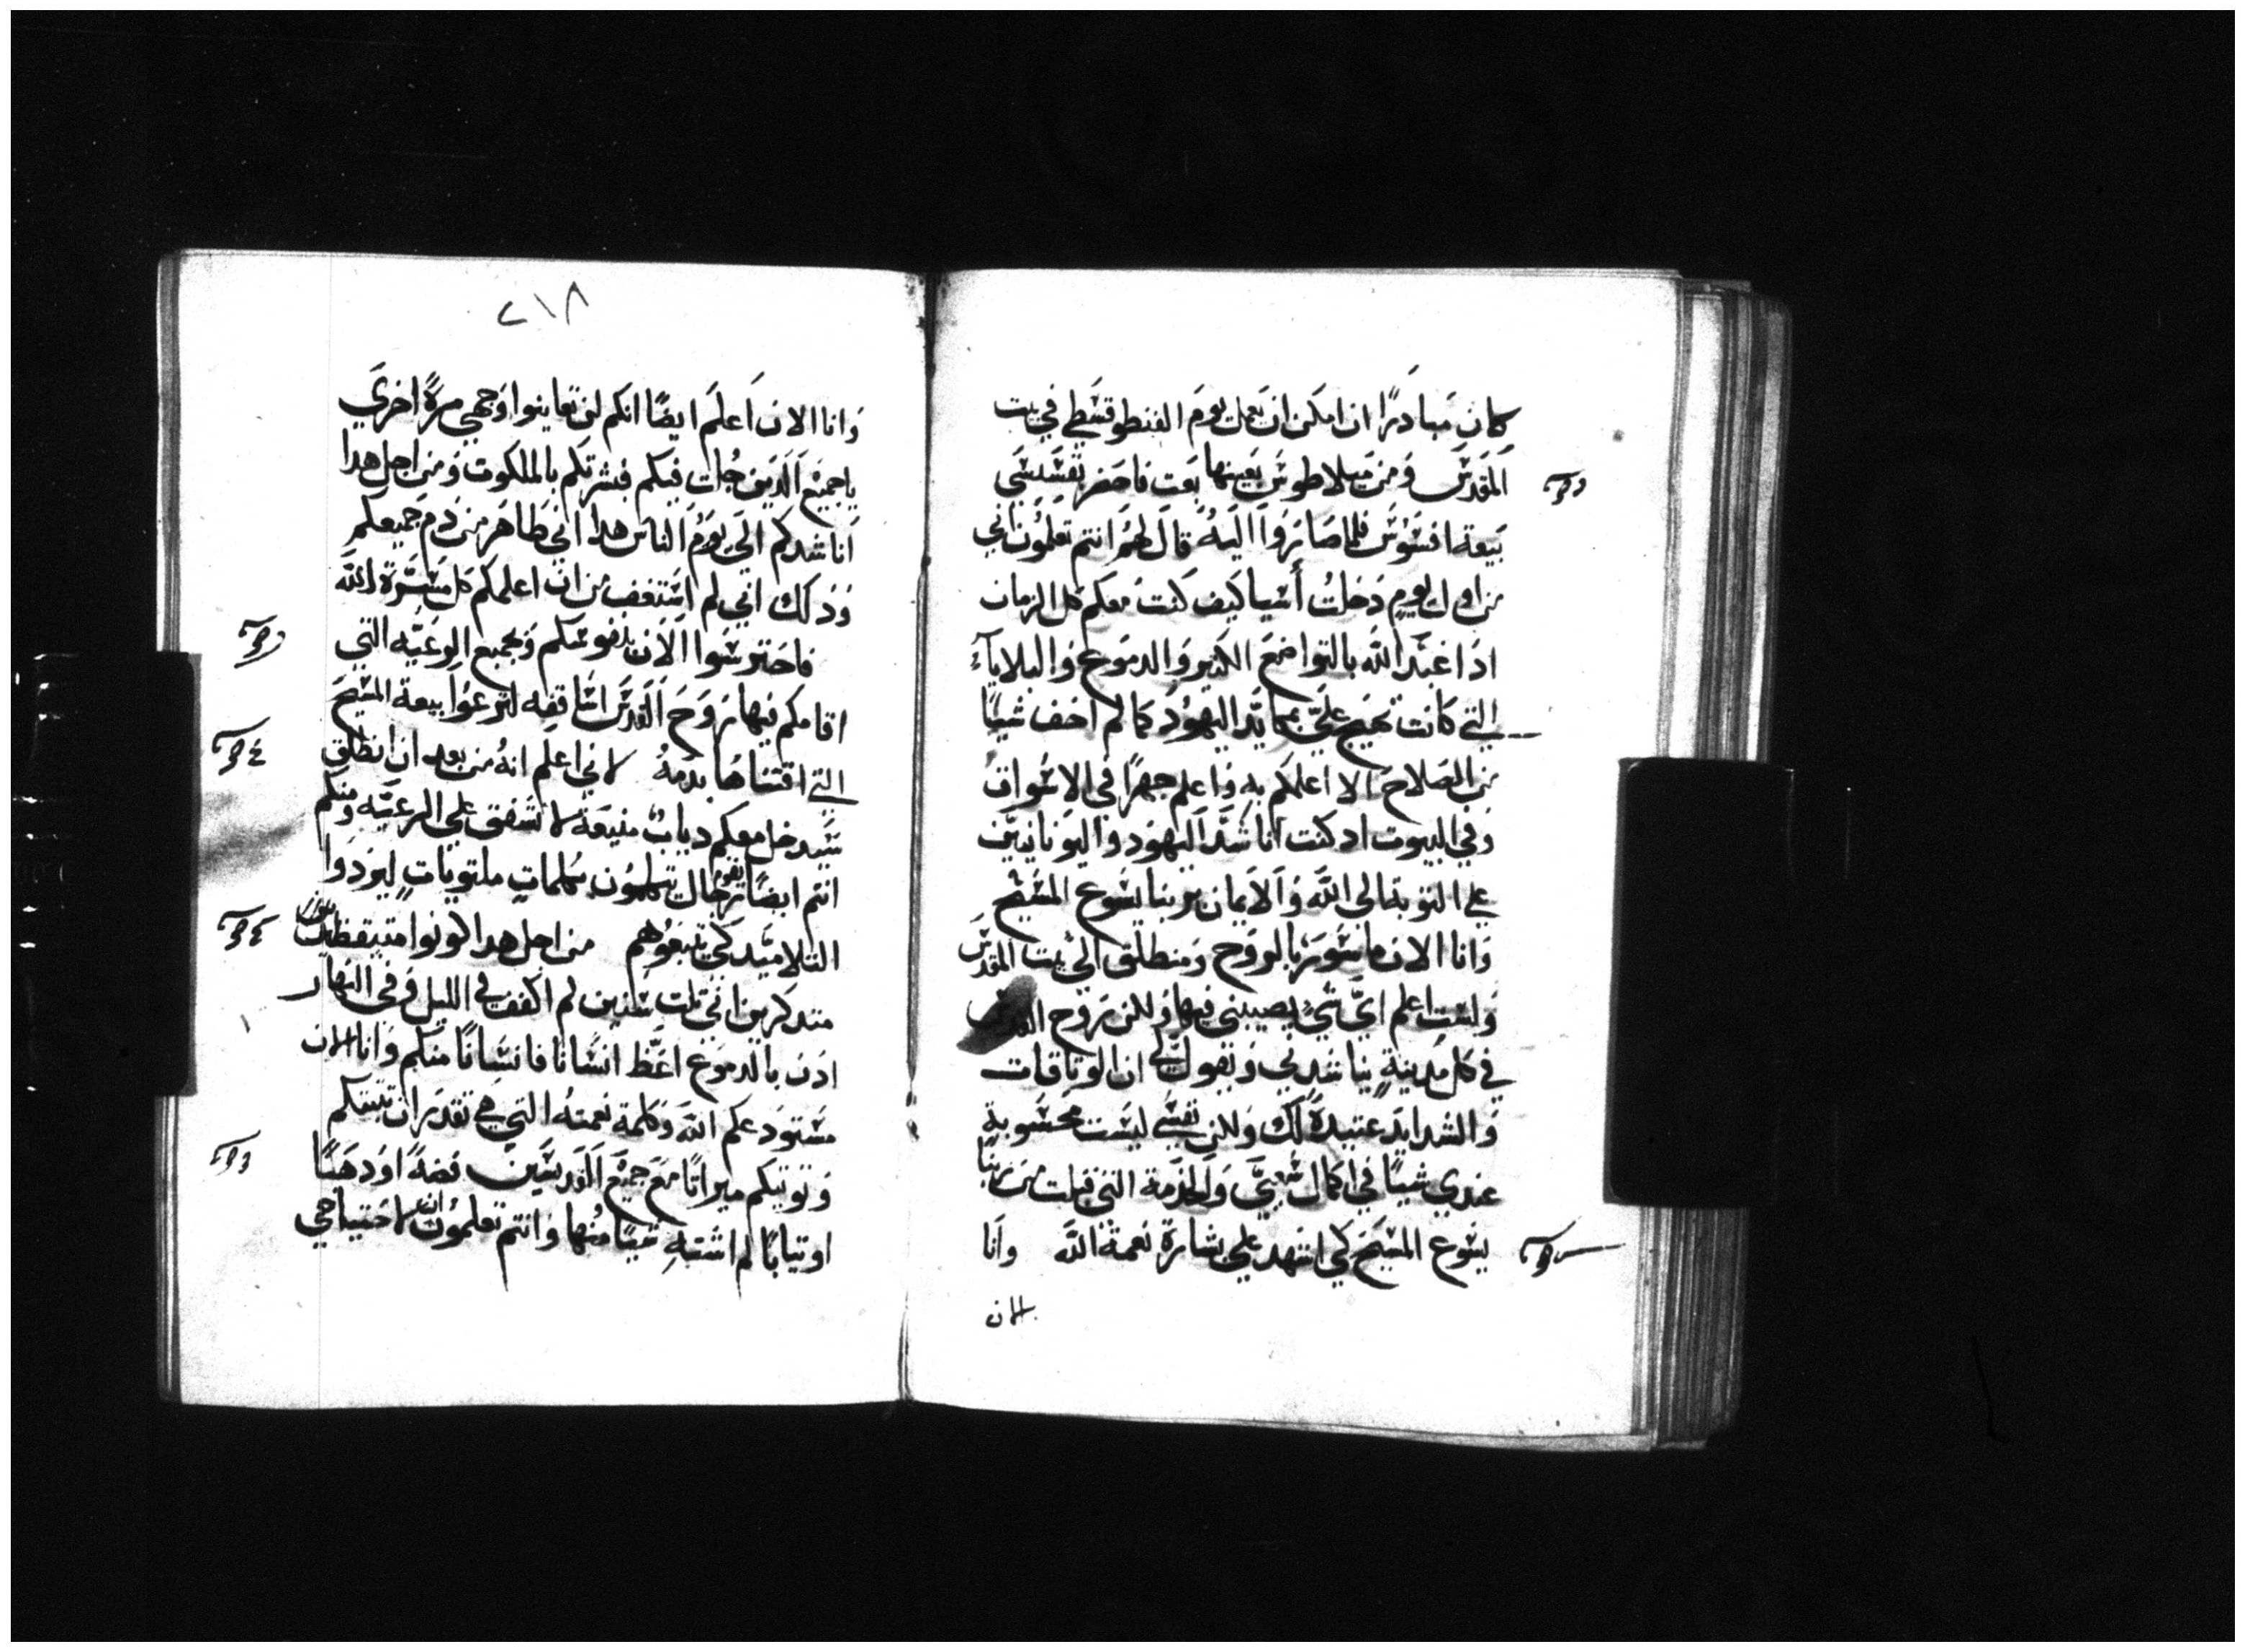 كان مبادرًا ان امكن ان يعمل يوم الفنطوقسطي في بيت
المقدس ومن ميلاطوس بعينها بعت فاحضر قسيسي
بيعة افسوس فلما صاروا اليه قال لهم انتم تعلمون اني
من اول يوم دخلت أسيا كيف كنت معكم كل الزمان
اذا عبد الله بالتواضع الكتير والدموع والبلايآء
التي كانت تهيج عليّ بمكايد اليهود كما لم اخف شيًا
من الصلاح الا اعلمكم به واعلم جهرًا في الاسواق
وفي البيوت اد كنت اناشد اليهود واليونانيين
علي التوبة الى الله والايمان بربنا يسوع المسيح
وانا الان ماسور بالروح ومنطلق الي بيت المقدس
ولست اعلم ايّ شيٍ يصيبني فيها ولكن روح القدس
في كل مدينةٍ يناشدني ويقول لي ان الوتاقات
والشدايد عتيدةً لك ولكن نفسي ليست محسوبة
عندي شيًا في اكمال سعيي والخدمة التي قبلت من ربنا
يسوع المسيح كي اشهد علي بشارة نعمة الله وانا
الان
٢١٨
وانا الان اعلم ايضًا انكم لن تعاينوا وجهي مرةً اخري
يا جميع الدين جُلت فيكم فبشرتكم بالملكوت ومن اجل هدا
اناشدكم الي يوم الناس هدا اني طاهر من دم جميعكم
ودلك اني لم استعف من ان اعلمكم كل مسرة الله
فاحترسوا الان بنفوسكم وبجميع الرعيه التي
اقامكم فيها روح القدس اساقفه لترعوا بيعة المسيح
التي اقتناها بدمهُ لاني اعلم انهُ من بعد ان انطلق
سيدخل معكم دياب منيعة لا تشفق علي الرعيه ومنكم
انتم ايضًا يقوم رجال يتكلمون بكلمات ملتويات ليردوا
التلاميد كي يتبعوهم من اجل هدا كونوا متيقظين
متدكرين اني تلت سنين لم اكفف في الليل وفي النهار
ادن بالدموع اعظ انسانًا فانسانًا منكم وانا الان
مستودعكم الله وكلمة نعمته التي هي تقدر ان تبنيكم
وتوتيكم ميراتًا مع جميع القديسين فضهً او دهبًا
او تيابًا لم اشته شيًا منها وانتم تعلمون انه لاحتياجي